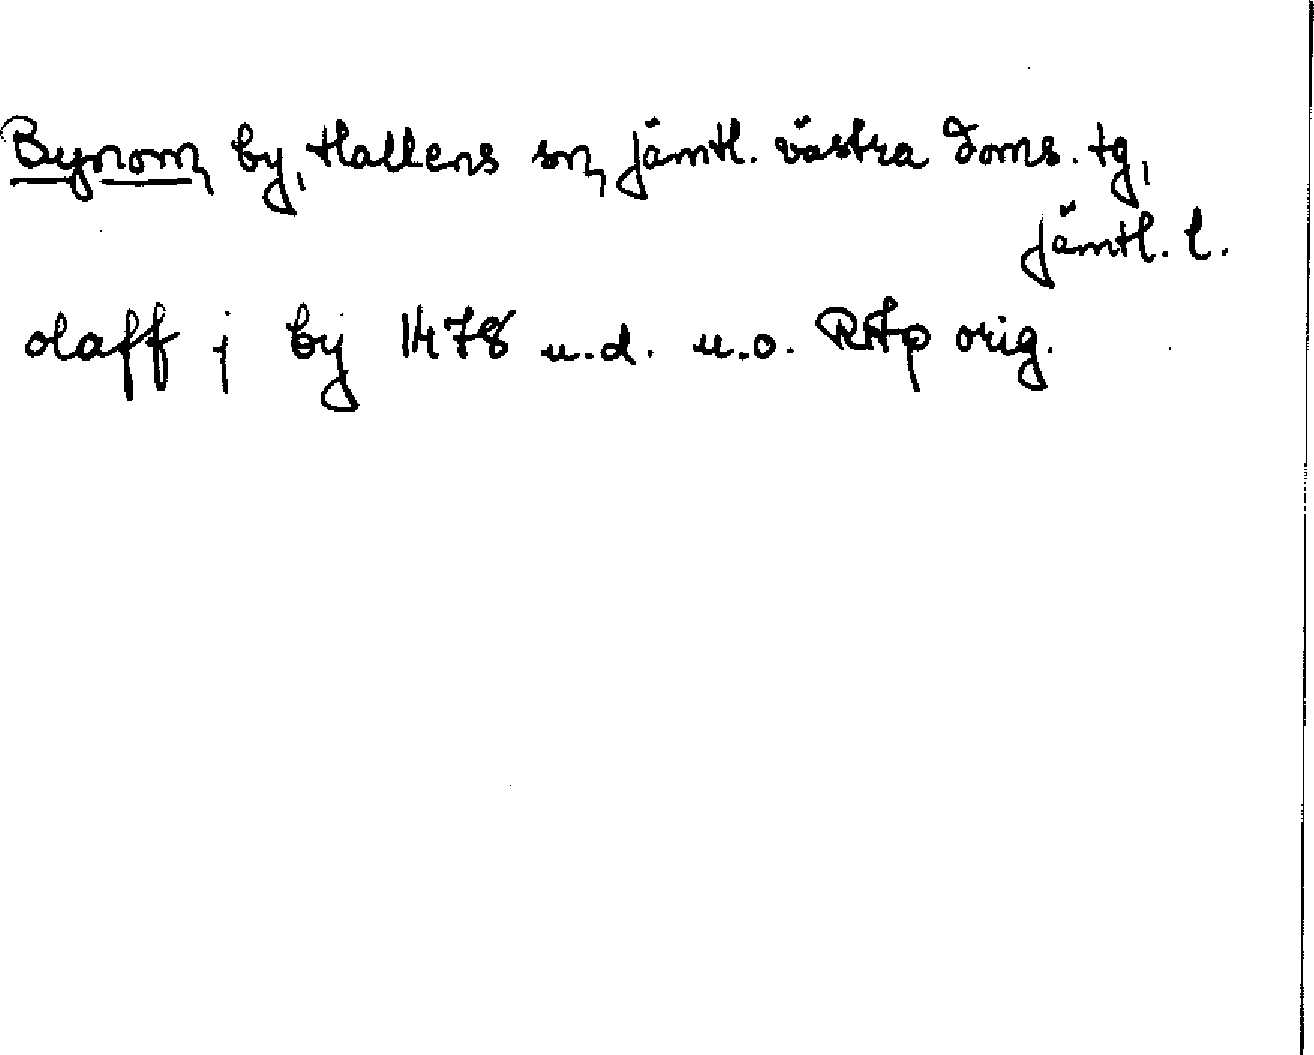 Bynom, by, Hallens sn, Jämtl. västra doms. tg,
Jämtl. l.
olaff j by 1478 u.d. u.o. RAp orig.